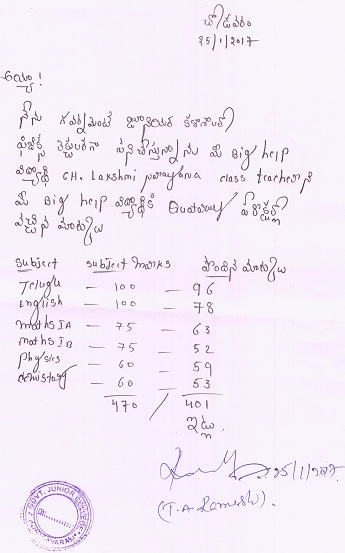 చోడవరం
25/1/2017
అయ్యా!
నేను గవర్నమెంట్ జూనియర్ కళాశాలలో
ఫిజిక్స్ లెక్చరర్‌గా పని చేస్తున్నాను మీ Big help
విద్యార్థి CH. Lakshmi narayana class teacher ని
మీ Big help విద్యార్థికి Quataray పరీక్షల్లో
వచ్చిన మార్కులు
subject subject marks పొందిన మార్కులు
Telugu — 100 — 96
English — 100 — 78
maths IA — 75 — 63
maths IB — 75 — 52
physics — 60 — 59
chemistry — 60 — 53
470 / 401
ఇట్లు
25/1/2017
(T.A Ramesh).
GOVT. JUNIOR COLLEGE